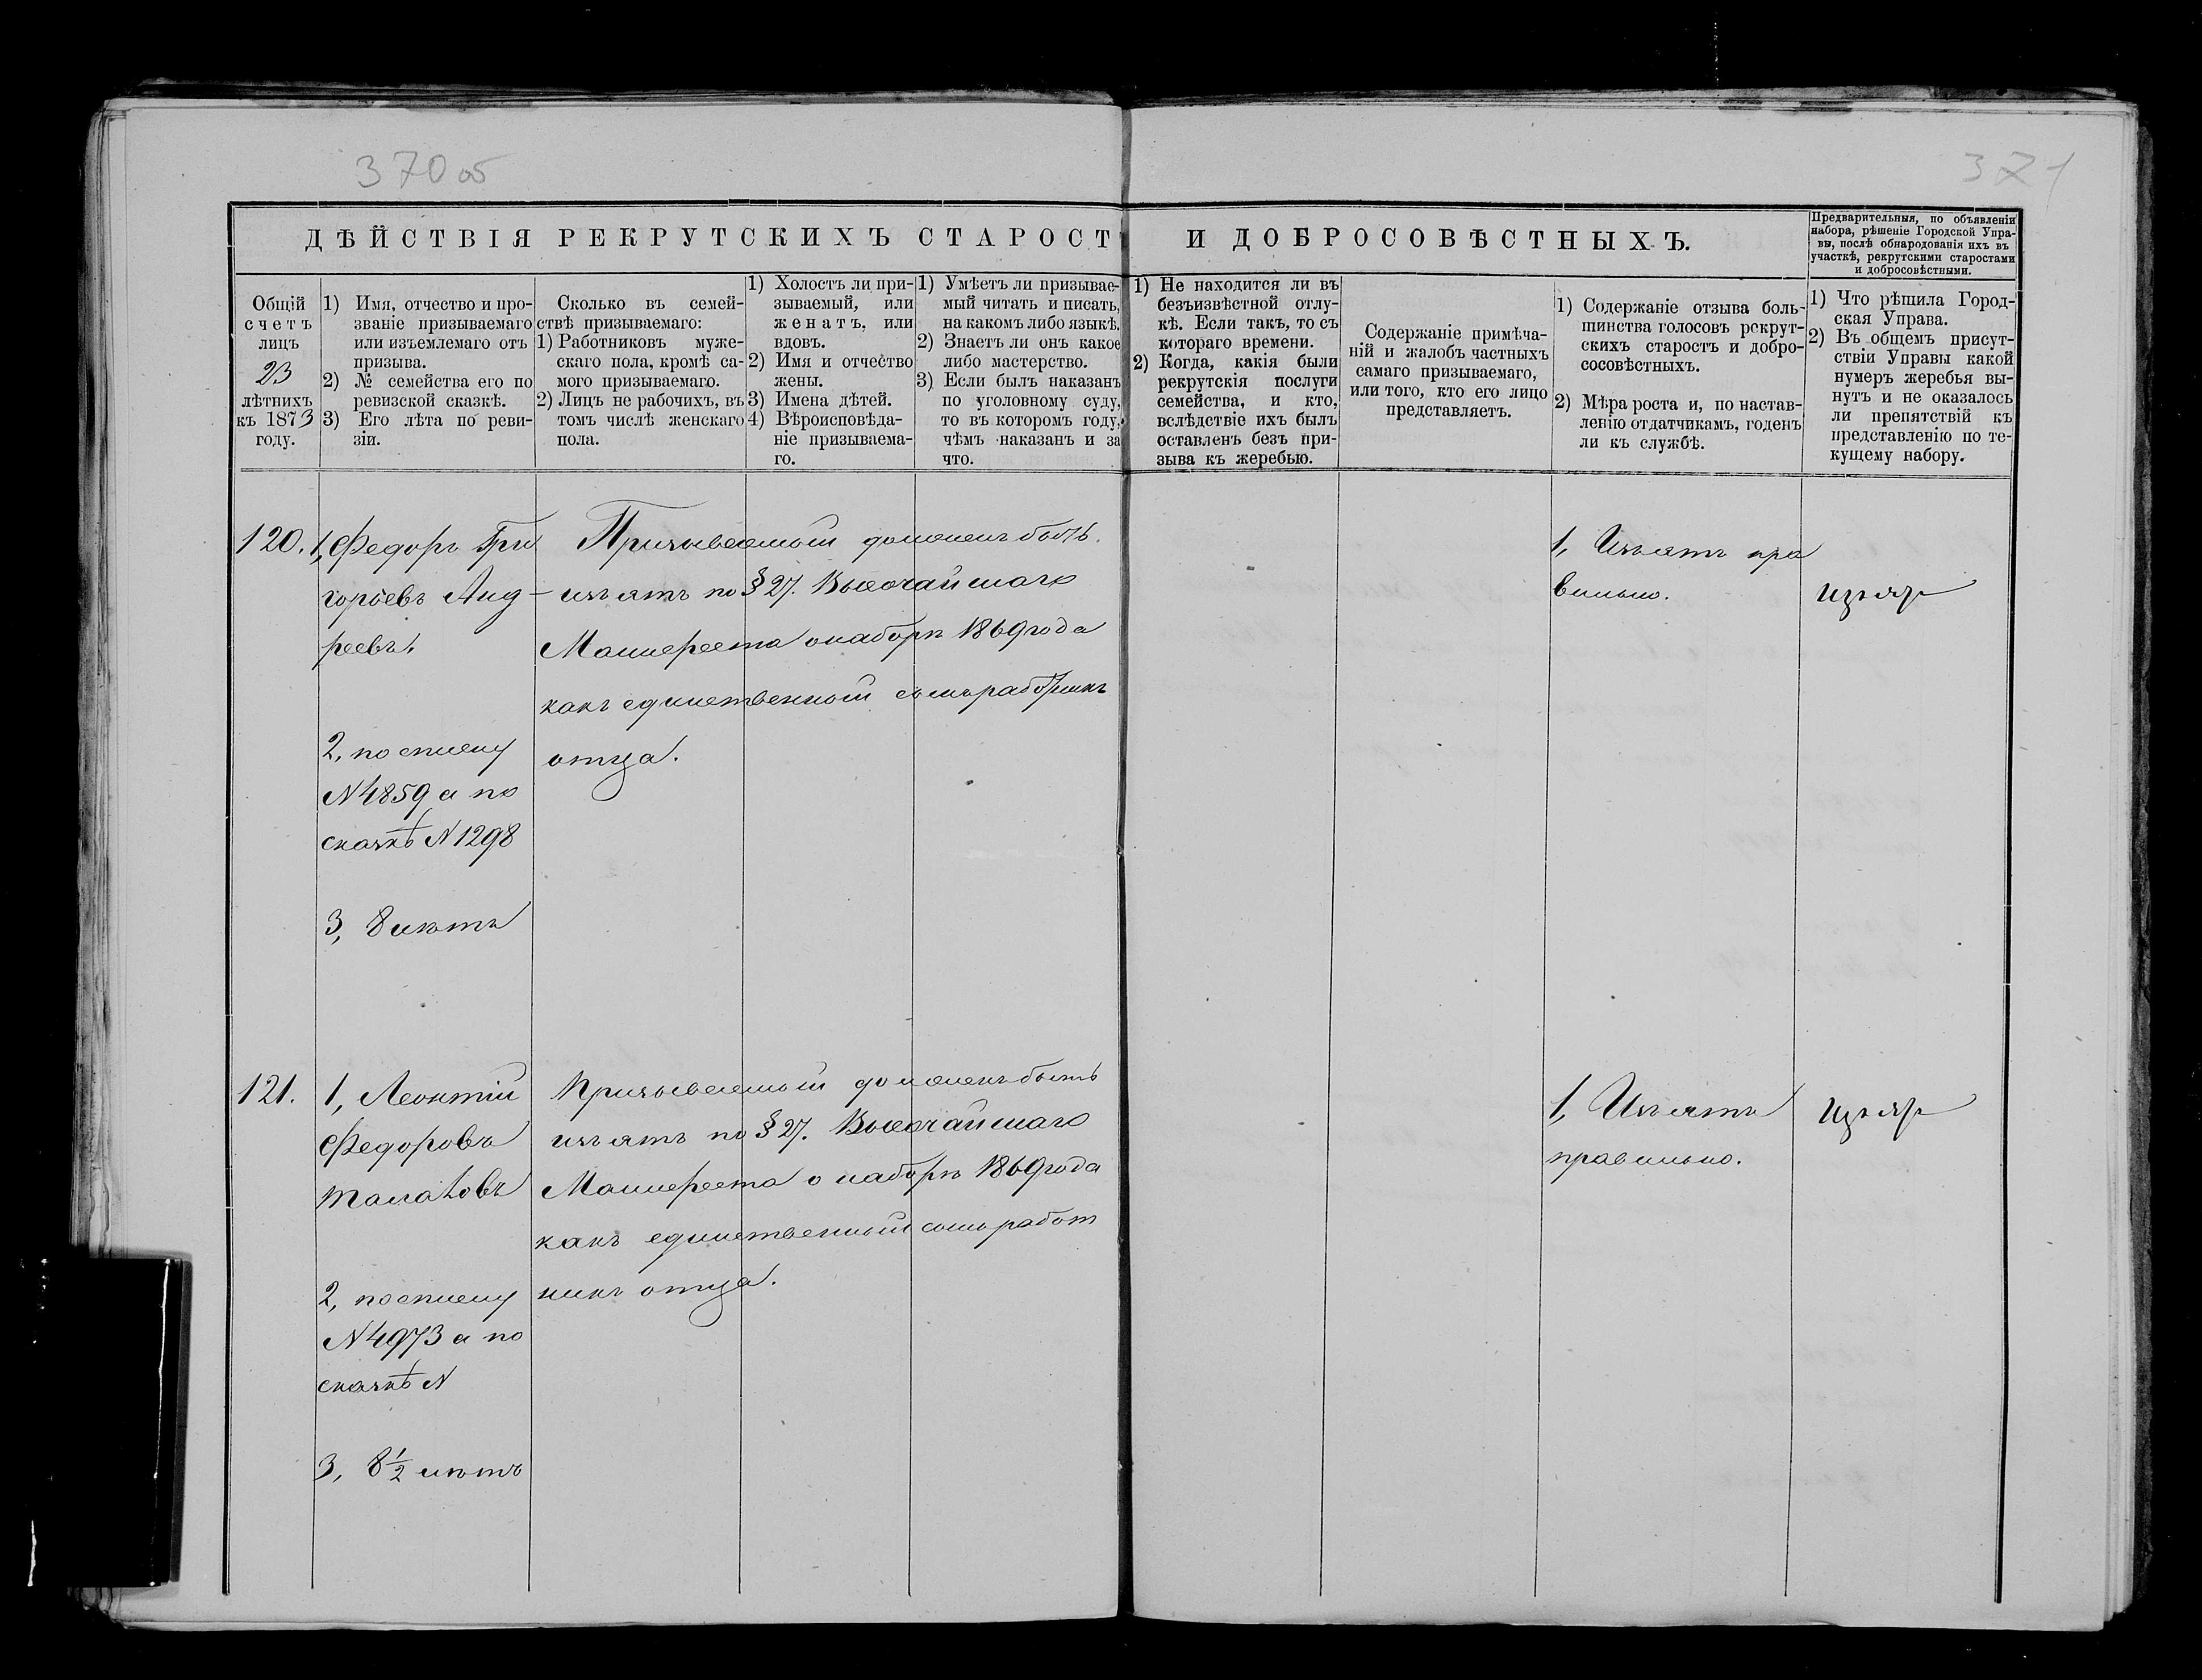 370 об
371
ДѢЙСТВІЯ РЕКРУТСКИХЪ СТАРОСТЪ И ДОБРОСОВѢСТНЫХЪ.
Предварительныя, по объявленіи
набора, рѣшеніе Городской Упра-
вы, послѣ обнародованія ихъ въ
участкѣ, рекрутскими старостами
и добросовѣстными.
Общій
счетъ
лицъ
23
лѣтнихъ
къ 1873
году.
1) Имя, отчество и про-
званіе призываемаго
или изъемлемаго отъ
призыва.
2) № семейства его по
ревизской сказкѣ.
3) Его лѣта по реви-
зіи.
Сколько въ семей-
ствѣ призываемаго:
1) Работниковъ муже-
скаго пола, кромѣ са-
мого призываемаго.
2) Лицъ не рабочихъ, въ
томъ числѣ женскаго
пола.
1) Холостъ ли при-
зываемый, или
женатъ, или
вдовъ.
2) Имя и отчество
жены.
3) Имена дѣтей.
4) Вѣроисповѣда-
ніе призываема-
го.
1) Умѣетъ ли призывае-
мый читать и писать,
на какомъ либо языкѣ.
2) Знаетъ ли онъ какое
либо мастерство.
3) Если былъ наказанъ
по уголовному суду,
то въ которомъ году,
чѣмъ наказанъ и за
что.
1) Не находится ли въ
безъизвѣстной отлу-
кѣ. Если такъ, то съ
котораго времени.
2) Когда, какія были
рекрутскія послуги
семейства, и кто,
вслѣдствіе ихъ былъ
оставленъ безъ при-
зыва къ жеребью.
Содержаніе примѣча-
ній и жалобъ частныхъ
самаго призываемаго,
или того, кто его лицо
представляетъ.
1) Содержаніе отзыва боль-
шинства голосовъ рекрут-
скихъ старостъ и добро-
сосовѣстныхъ.
2) Мѣра роста и, по настав-
ленію отдатчикамъ, годенъ
ли къ службѣ.
1) Что рѣшила Город-
ская Управа.
2) Въ общемъ присут-
ствіи Управы какой
нумеръ жеребья вы-
нутъ и не оказалось
ли препятствій къ
представленію по те-
кущему набору.
120.
1, Федоръ Гри
горьевъ Анд-
реевъ.
2, по списку
N 4859 а по
сказкѣ N 1298
3, 8 лѣтъ
Призываемый долженъ быть
изъятъ по § 27. Высочайшаго
Манифеста о наборѣ 1869 года
какъ единственный сынъ работникъ
отца.
1, Изъятъ пра
вильно.
Изъят
121.
1, Леонтій
Федоровъ
Талатовъ
2, по списку
N 4973 а по
сказкѣ N
3, 8½ лѣтъ
Призываемый долженъ быть
изъятъ по § 27. Высочайшаго
Манифеста о наборѣ 1869 года
какъ единственный сынъ работ
никъ отца.
1, Изъятъ
правильно.
Изъят